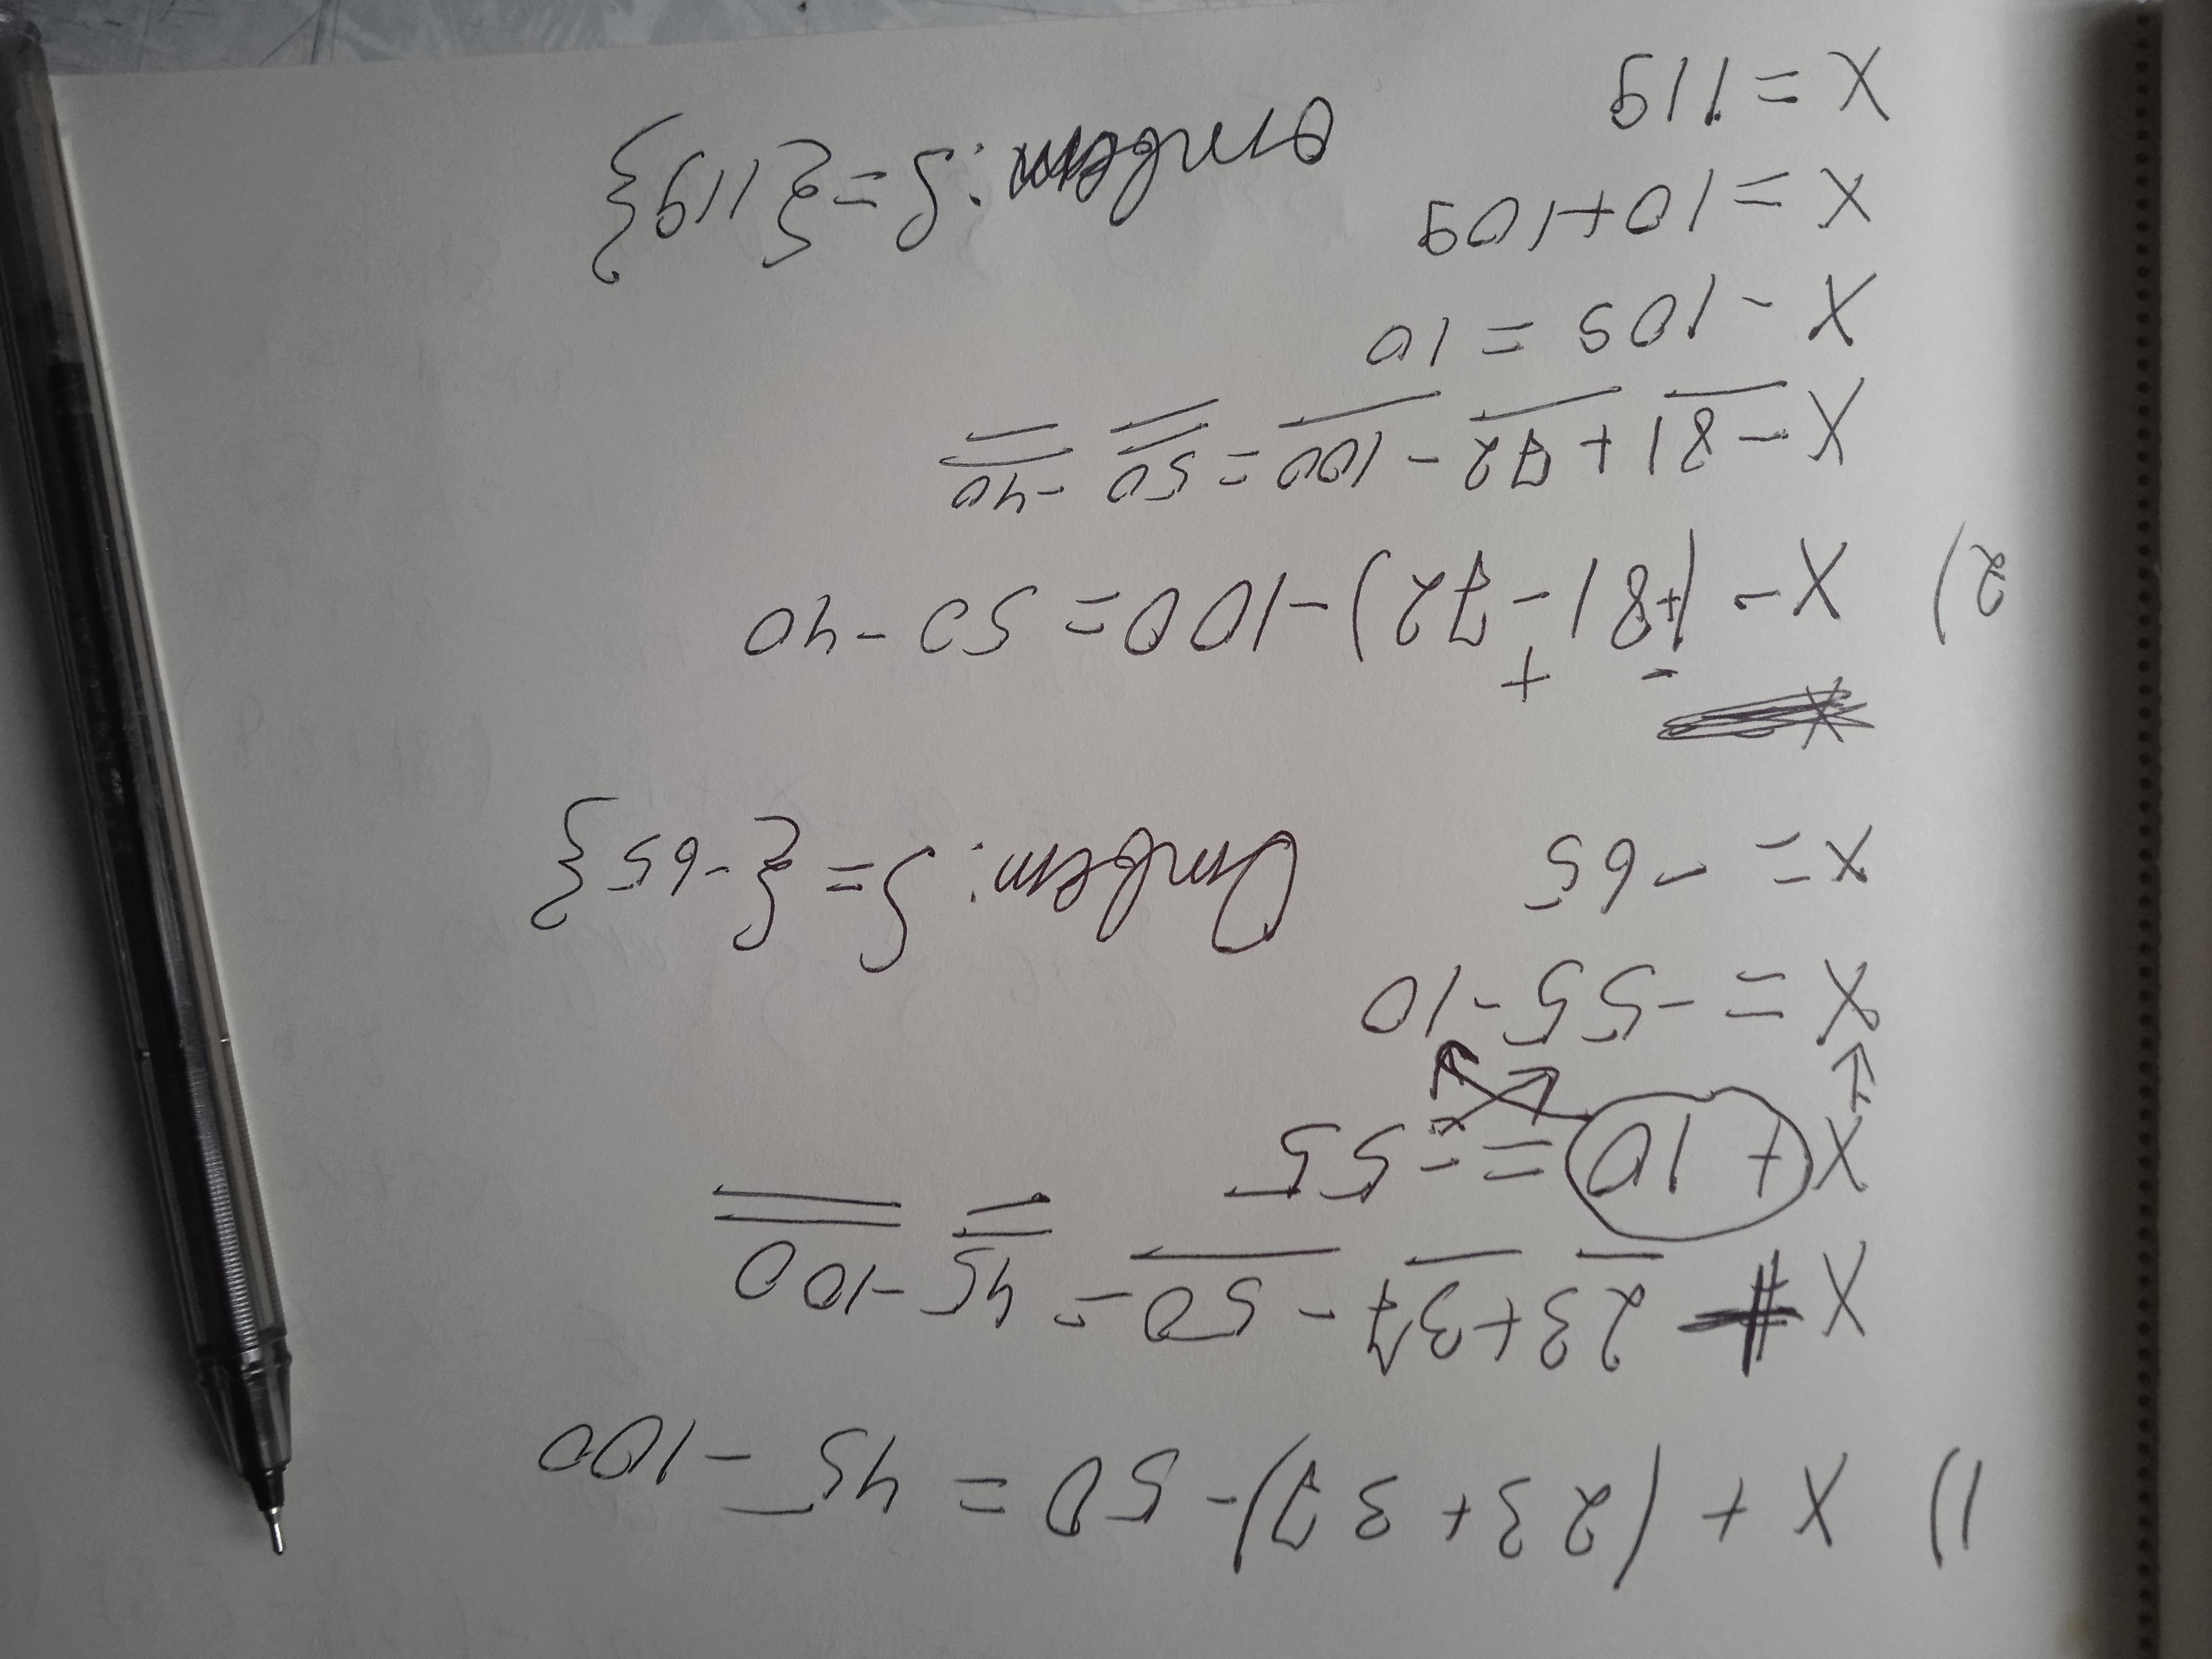 1) X + (23 + 37) - 50 = 45 - 100
X + 23 + 37 - 50 = 45 - 100
X + 10 = - 55
X = - 55 - 10
X = - 65 Ответ: S = {-65}
- +
2) X - (+81 - 72) - 100 = 50 - 40
X - 81 + 72 - 100 = 50 - 40
X - 109 = 10
X = 10 + 109
X = 119 Ответ: S = {119}